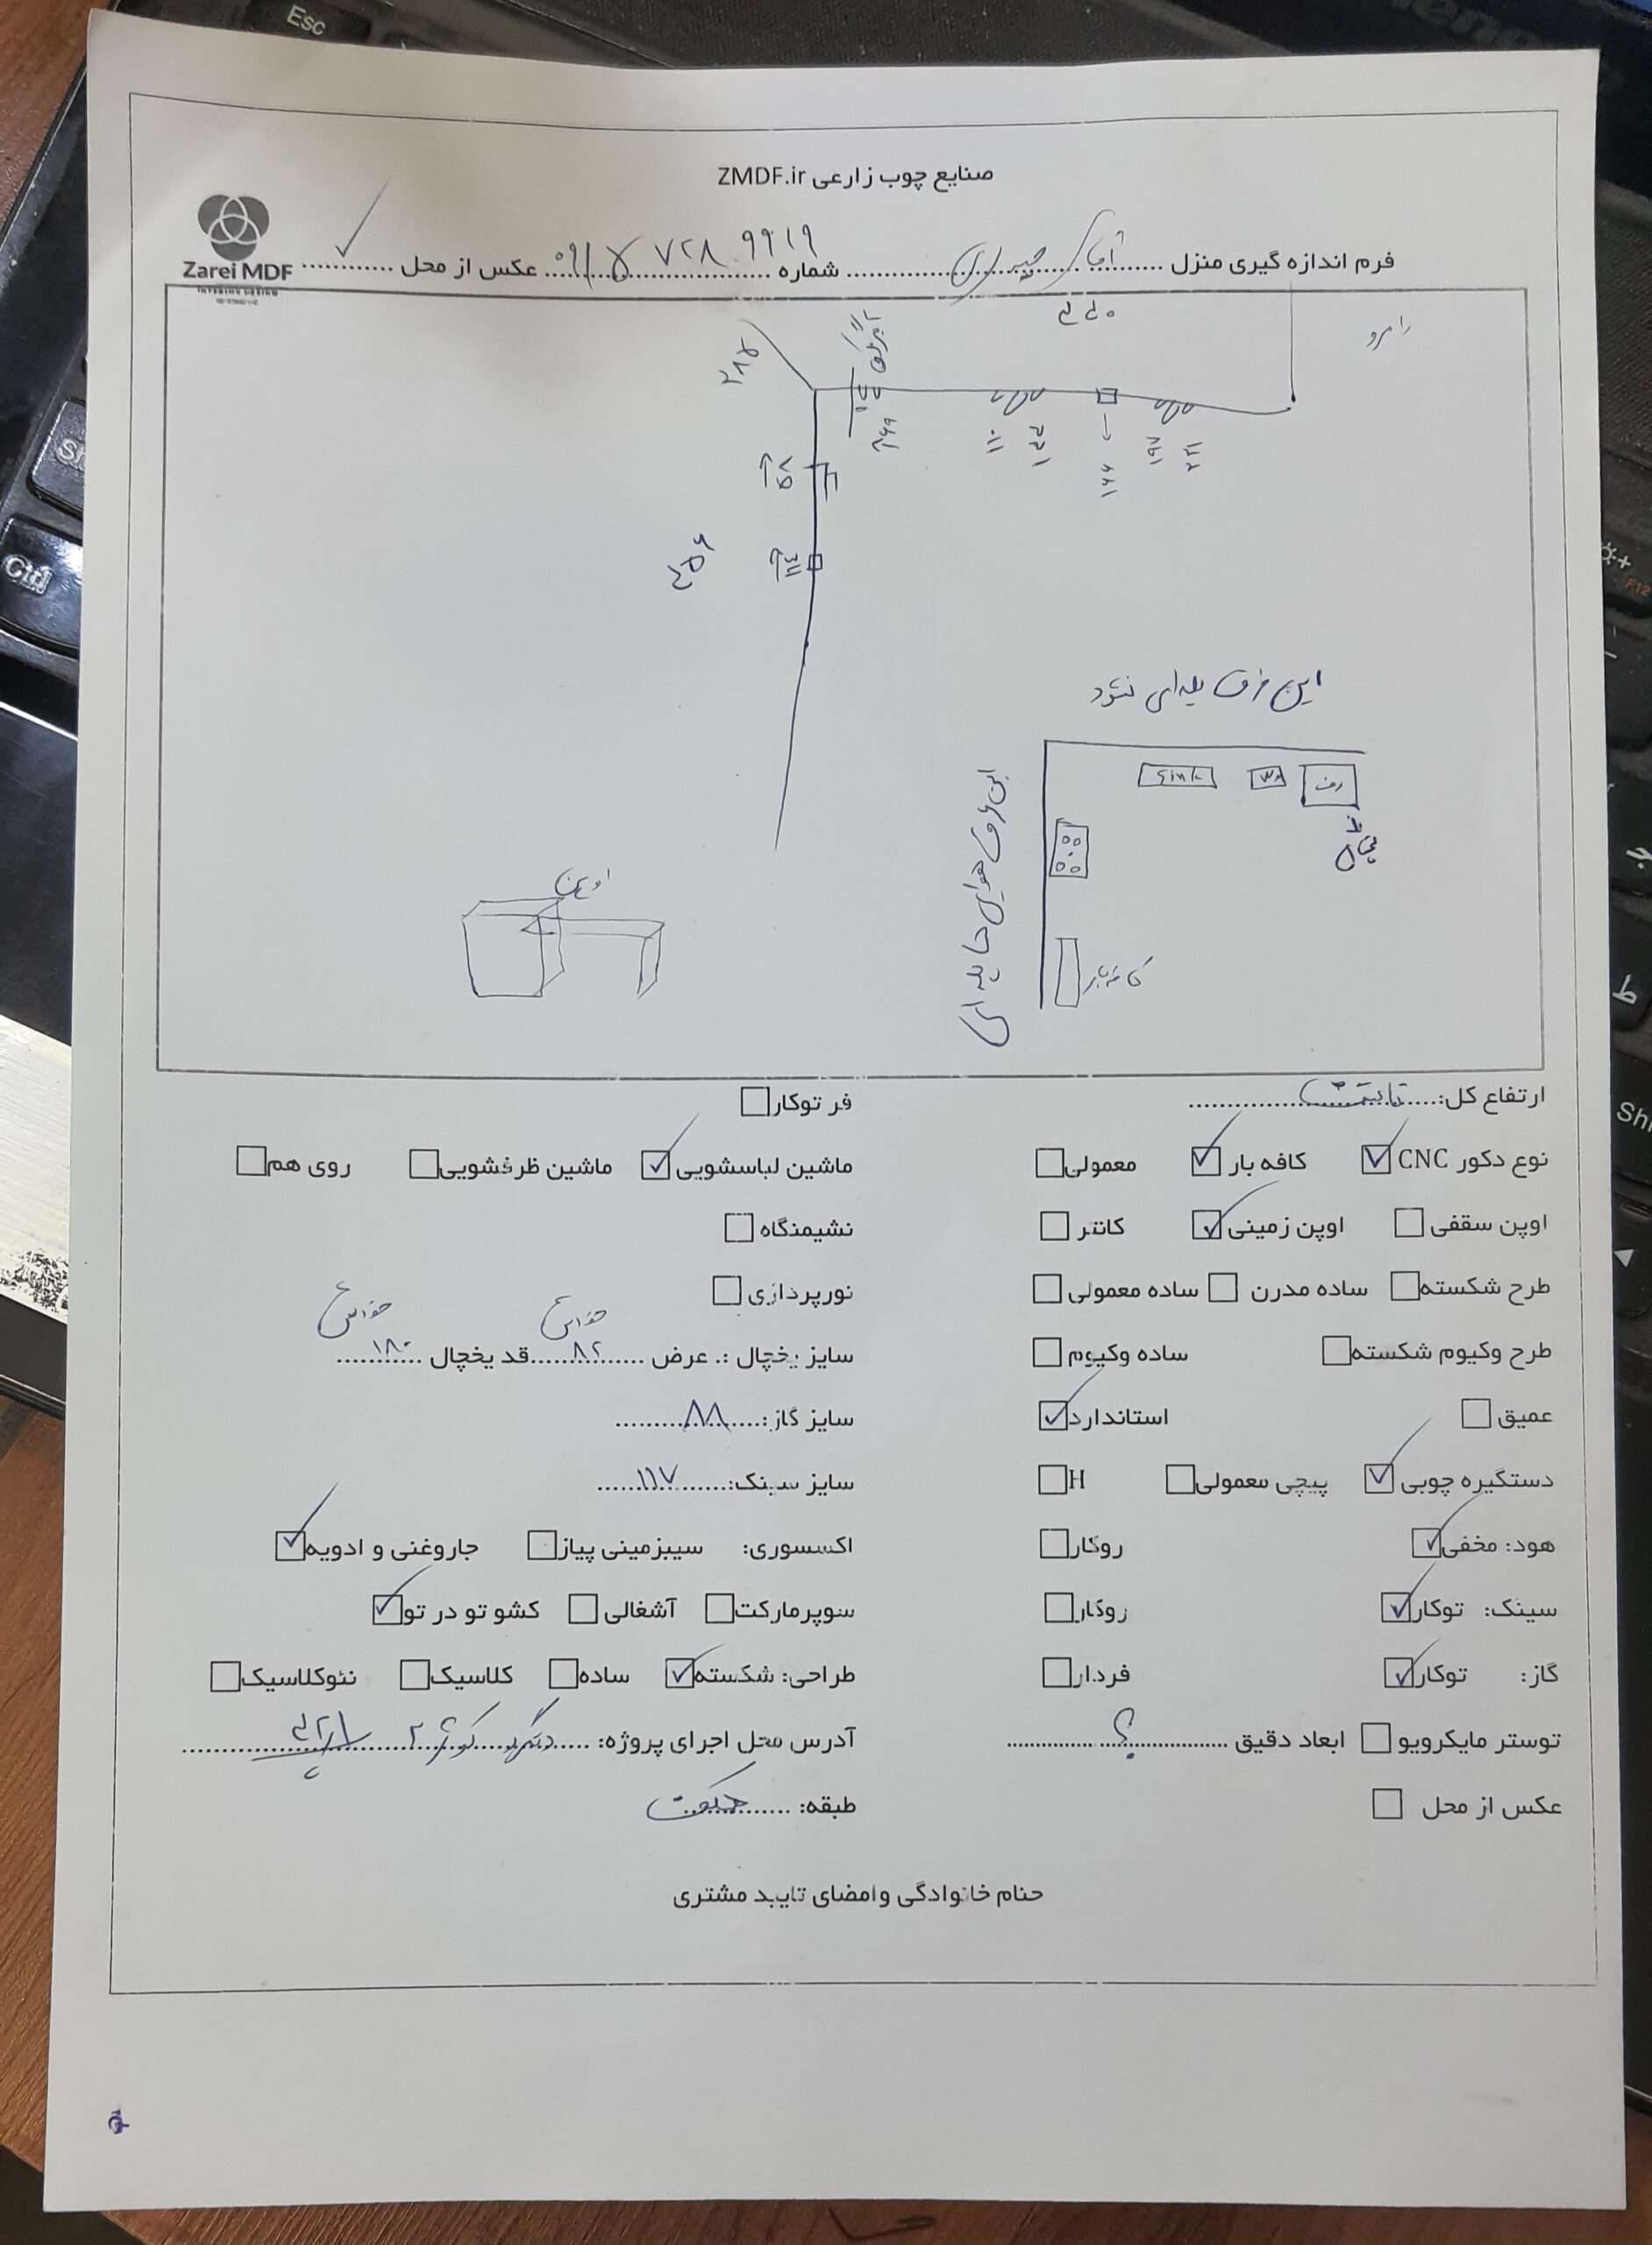 صنایع چوب زارعی ZMDF.ir
Zarei MDF
INTERIOR DESIGN
فرم اندازه گیری منزل آقای شماره ۷۲۸ ۹۹۱۹ عکس از محل ✓
راهرو
۲۸۷
۱۱۰
۱۶۶
۱۹۷
۲۲۱
۵۸
این طرف پله ای نشود
Sink
این طرف هوایی ها پله ای
کافه بار
اوپن
ارتفاع کل: تا سقف
فر توکار
نوع دکور CNC ✓ کافه بار ✓ معمولی
ماشین لباسشویی ✓ ماشین ظرفشویی روی هم
اوپن سقفی اوپن زمینی ✓ کانتر
نشیمنگاه
طرح شکسته ساده مدرن ساده معمولی
نورپردازی
طرح وکیوم شکسته ساده وکیوم
سایز یخچال :. عرض ۸۲ قد یخچال ۱۸۰
عمیق استاندارد ✓
سایز گاز: ۸۸
دستگیره چوبی ✓ پیچی معمولی H
سایز سینک: ۱۱۷
هود: مخفی ✓ روکار
اکسسوری: سیبزمینی پیاز جاروغنی و ادویه ✓
سینک: توکار ✓ روکار
سوپرمارکت آشغالی کشو تو در تو ✓
گاز: توکار ✓ فردار
طراحی: شکسته ✓ ساده کلاسیک نئوکلاسیک
توستر مایکرویو ابعاد دقیق ؟
آدرس محل اجرای پروژه:
عکس از محل
طبقه: همکف
حنام خانوادگی وامضای تایید مشتری
Esc
Ctrl
F12